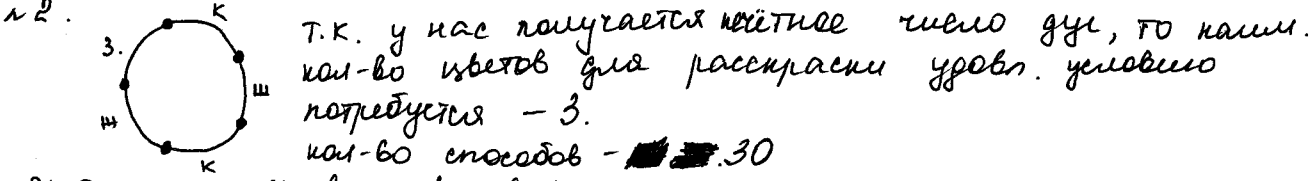 №2.
К
З.
Ж
Ш
К
Т.к. у нас получается нечётное число дуг, то наим.
кол-во цветов для расскраски удовл. условию
потребуется – 3.
кол-во способов – 30